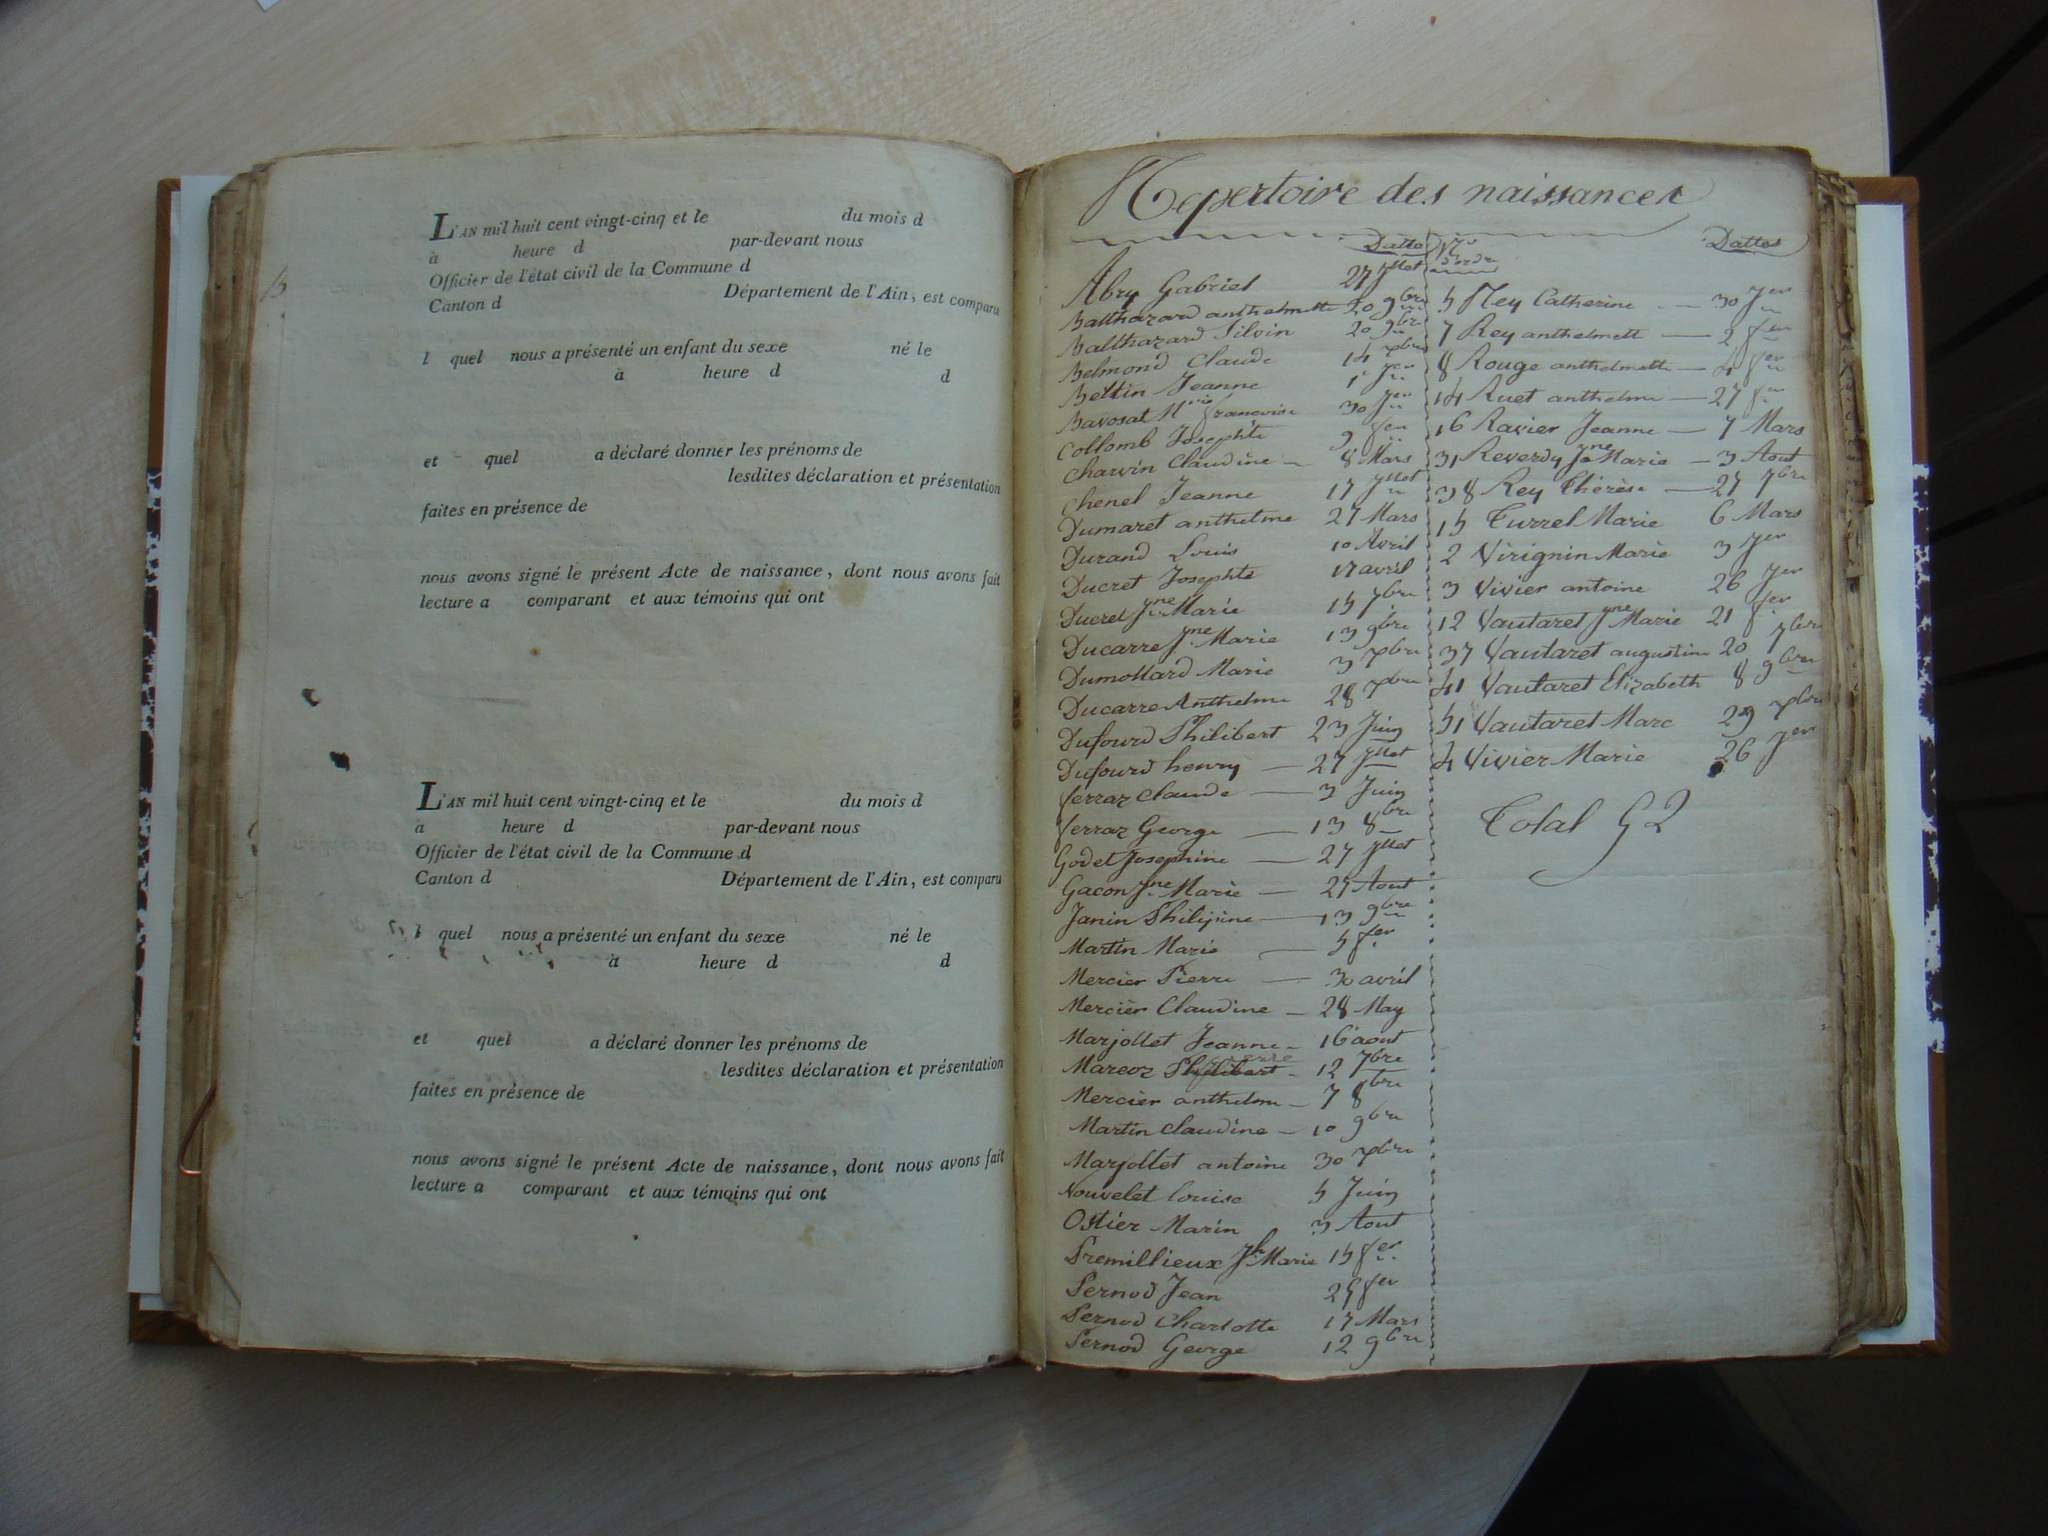 L'AN mil huit cent vingt-cinq et le du mois d
à heure d par-devant nous
Officier de l'état civil de la Commune d
Canton d Département de l'Ain, est comparu
l quel nous a présenté un enfant du sexe né le
à heure d d
et quel a déclaré donner les prénoms de
lesdites déclaration et présentation
faites en présence de
nous avons signé le présent Acte de naissance, dont nous avons fait
lecture a comparant et aux témoins qui ont
L'AN mil huit cent vingt-cinq et le du mois d
a heure d par-devant nous
Officier de l'état civil de la Commune d
Canton d Département de l'Ain, est comparu
l quel nous a présenté un enfant du sexe né le
à heure d d
et quel a déclaré donner les prénoms de
lesdites déclaration et présentation
faites en présence de
nous avons signé le présent Acte de naissance, dont nous avons fait
lecture a comparant et aux témoins qui ont
Repertoire des naissances
Datte
Abry Gabriel 27 jllet
Balthazard anthelmette 20 9bre
Balthazard Silvin 20 9bre
Belmond Claude 14 xbre
Bettin Jeanne 1er Jer
Bavosat Mrie francoise 30 Jer
Collomb Josephte 9 fer
Charvin Claudine 8 Mars
Chenel Jeanne 17 Jllet
Dumaret anthelme 27 Mars
Durand Louis 10 Avril
Ducret Josephte 17 avril
Ducret Jne Marie 15 7bre
Ducarre Jne Marie 13 9bre
Dumollard Marie 3 xbre
Ducarre Anthelme 28 xbre
Dufourd Philibert 23 Juin
Dufourd henry 27 Jllet
ferraz Claude 3 Juin
ferraz George 13 8bre
Godet Josephine 27 Jllet
Gacon Jne Marie 27 Aout
Janin Philipine 13 9bre
Martin Marie 5 fer
Mercier Pierre 30 avril
Mercier Claudine 28 May
Marjollet Jeanne 16 aout
Marcoz Philibert 12 7bre
Mercier anthelme 7 8bre
Martin Claudine 10 9bre
Marjollet antoine 30 xbre
Nouvelet louise 5 Juin
Ostier Marin 3 Aout
Premillieux Jh Marie 15 fer
Pernod Jean 25 fer
Pernod Charlotte 17 Mars
Pernod George 12 9bre
Nos d'ordre Dattes
5 Rey Catherine 30 Jer
7 Rey anthelmette 2 fer
8 Rouge anthelmette 4 fer
14 Ruet anthelme 27 fer
16 Ravier Jeanne 7 Mars
31 Reverdy Jne Marie 3 Aout
38 Rey Thérèse 27 7bre
15 Turrel Marie 6 Mars
2 Virignin Marie 3 Jer
3 Vivier antoine 26 Jer
12 Vautaret Jne Marie 21 fer
37 Vautaret augustine 20 7bre
41 Vautaret Elizabeth 8 9bre
51 Vautaret Marc 29 xbre
4 Vivier Marie 26 Jer
Total 52